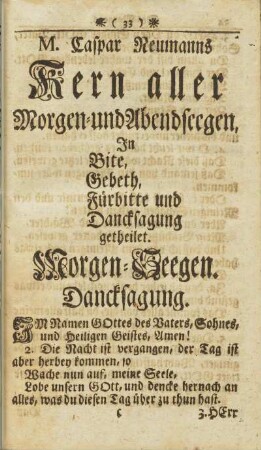 * ( 33 ) *
M. Caspar Neumanns
Kern aller
Morgen-und Abendseegen,
In
Bite,
Gebeth,
Fürbitte und
Dancksagung
getheilet.
Morgen-Seegen.
Dancksagung.
IM Namen GOttes des Vaters, Sohnes,
und Heiligen Geistes, Amen!
2. Die Nacht ist vergangen, der Tag ist
aber herbey kommen, so
Wache nun auf, meine Seele,
Lobe unsern GOtt, und dencke hernach an
alles, was du diesen Tag über zu thun hast.
c 3. HErr